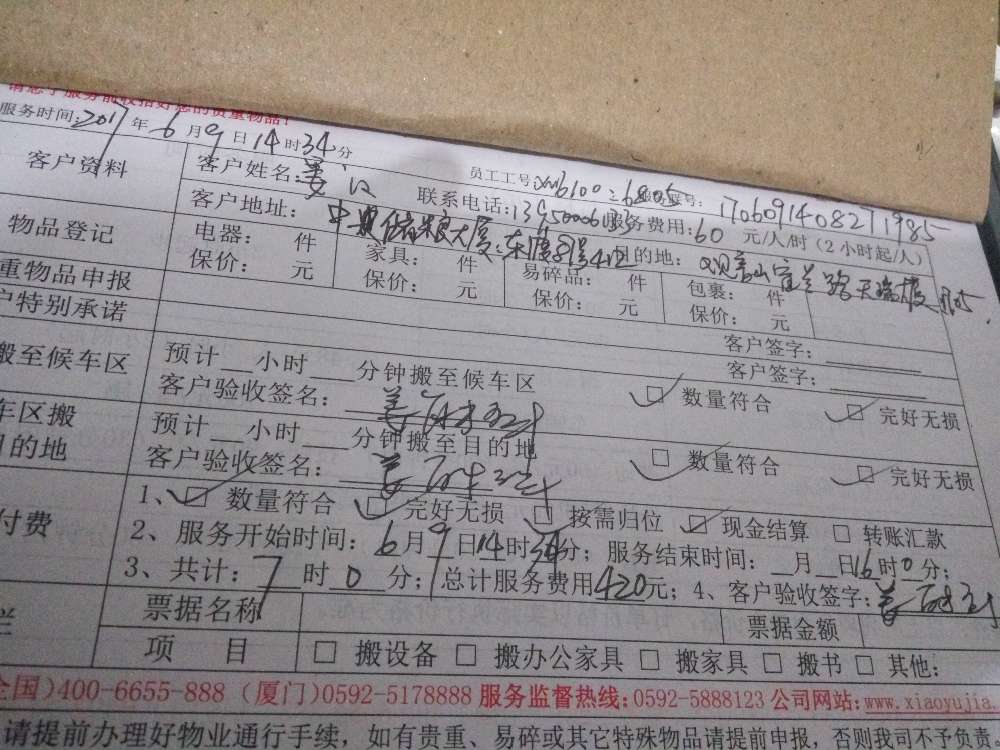 请您于服务前收拾好您的贵重物品!
服务时间:2017年6月9日14时34分
员工工号
客户资料 客户姓名:姜 联系电话: 服务费用:60元/人/时(2小时起/人)
客户地址: 目的地:
物品登记 电器: 件 家具: 件 易碎品: 件 包裹: 件
保价: 元 保价: 元 保价: 元 保价: 元
重物品申报 客户签字:
户特别承诺 客户签字:
搬至候车区 预计__小时___分钟搬至候车区 □ 数量符合 □ 完好无损
客户验收签名:姜
车区搬 预计__小时___分钟搬至目的地 □ 数量符合 □ 完好无损
目的地 客户验收签名:姜
1、□ 数量符合 □ 完好无损 □ 按需归位 □ 现金结算 □ 转账汇款
付费 2、服务开始时间:6月9日14时34分; 服务结束时间:__月__日16时0分;
3、共计:7时0分;总计服务费用420元; 4、客户验收签字:姜
栏 票据名称 票据金额
项 目 □ 搬设备 □ 搬办公家具 □ 搬家具 □ 搬书 □ 其他:
全国)400-6655-888 (厦门)0592-5178888 服务监督热线:0592-5888123 公司网站:www.xiaoyujia.
请提前办理好物业通行手续, 如有贵重、易碎或其它特殊物品请提前申报, 否则我司不予负责